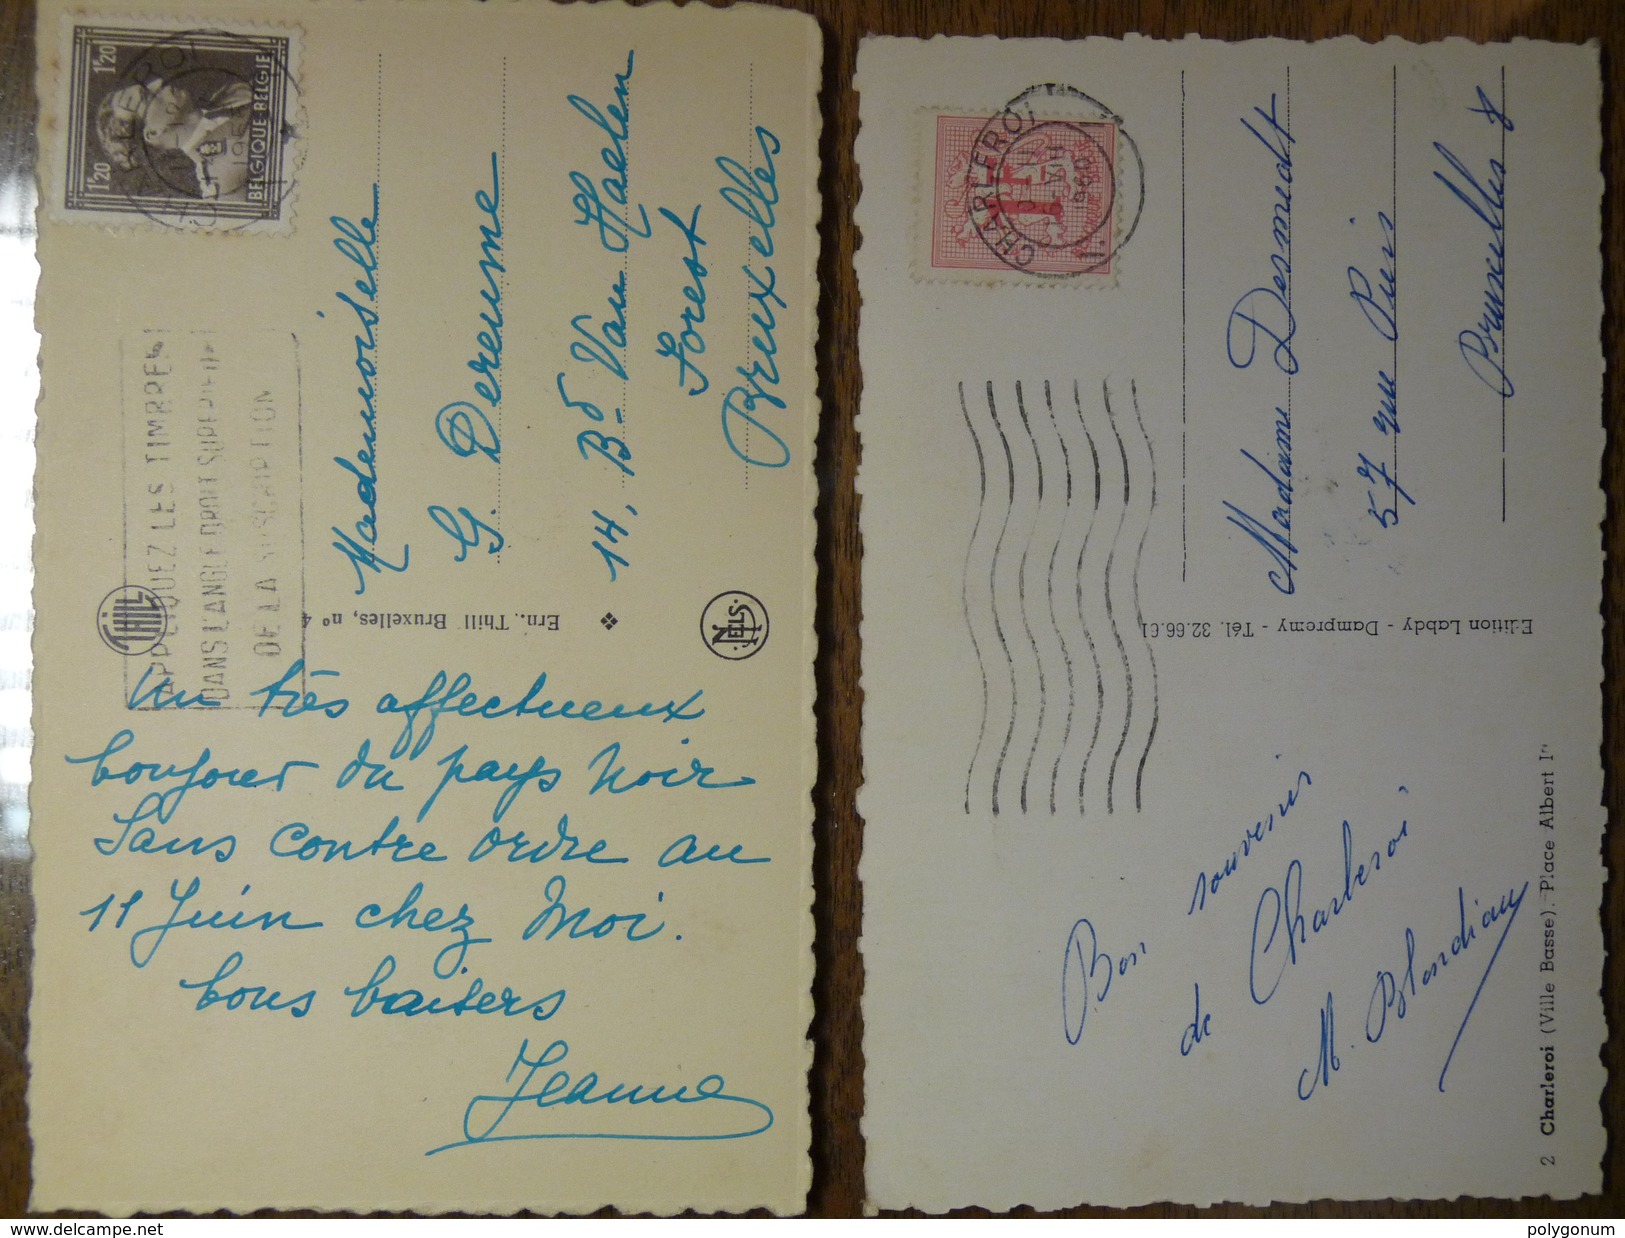 1'20 1'20
BELGIQUE-BELGIE
CHARLEROI
APPLIQUEZ LES TIMBRES
DANS L'ANGLE DROIT SUPERIEUR
DE LA SUSCRIPTION
THILL
Ern. Thill Bruxelles, n° 4
NELS
Mademoiselle
G. Dereume
14, Bd Van Haelen
Forest
Bruxelles
Un très affectueux
bonjour du pays noir
Sans contre ordre au
11 Juin chez moi.
bons baisers
Jeanne
CHARLEROI
1F
Madam Desmedt
57 rue Puis
Bruxelles
Edition Labdy - Dampremy - Tél. 32.66.61
Bon souvenir
de Charleroi
M. Blondiau
2 Charleroi (Ville Basse). Place Albert Ir
delcampe.net
polygonum